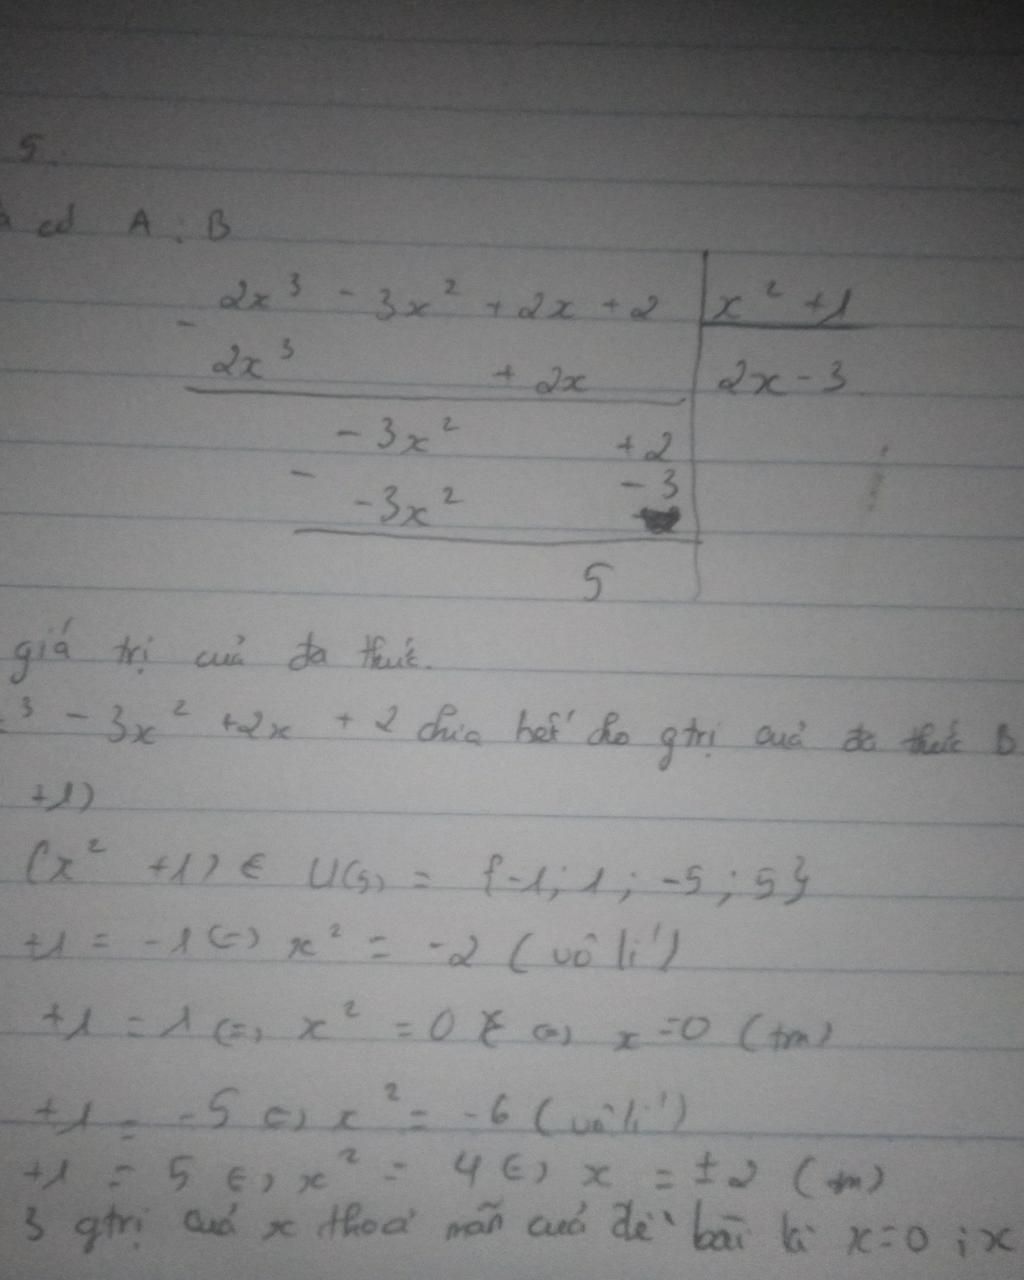 5.
có A : B
2x³ - 3x² + 2x + 2 | x² + 1
-
2x³ + 2x | 2x - 3
- 3x² + 2
-
- 3x² - 3
5
giá trị của đa thức.
³ - 3x² + 2x + 2 chia hết cho gtrị của đa thức B
+1)
(x² + 1) ∈ Ư(5) = {-1; 1; -5; 5}
+1 = -1 (=) x² = -2 (vô lí)
+1 = 1 (=) x² = 0 (=) x = 0 (tm)
+1 = -5 (=) x² = -6 (vô lí)
+1 = 5 (=) x² = 4 (=) x = ±2 (tm)
3 gtrị cuả x thoả mãn cuả đề bài là x=0 ; x